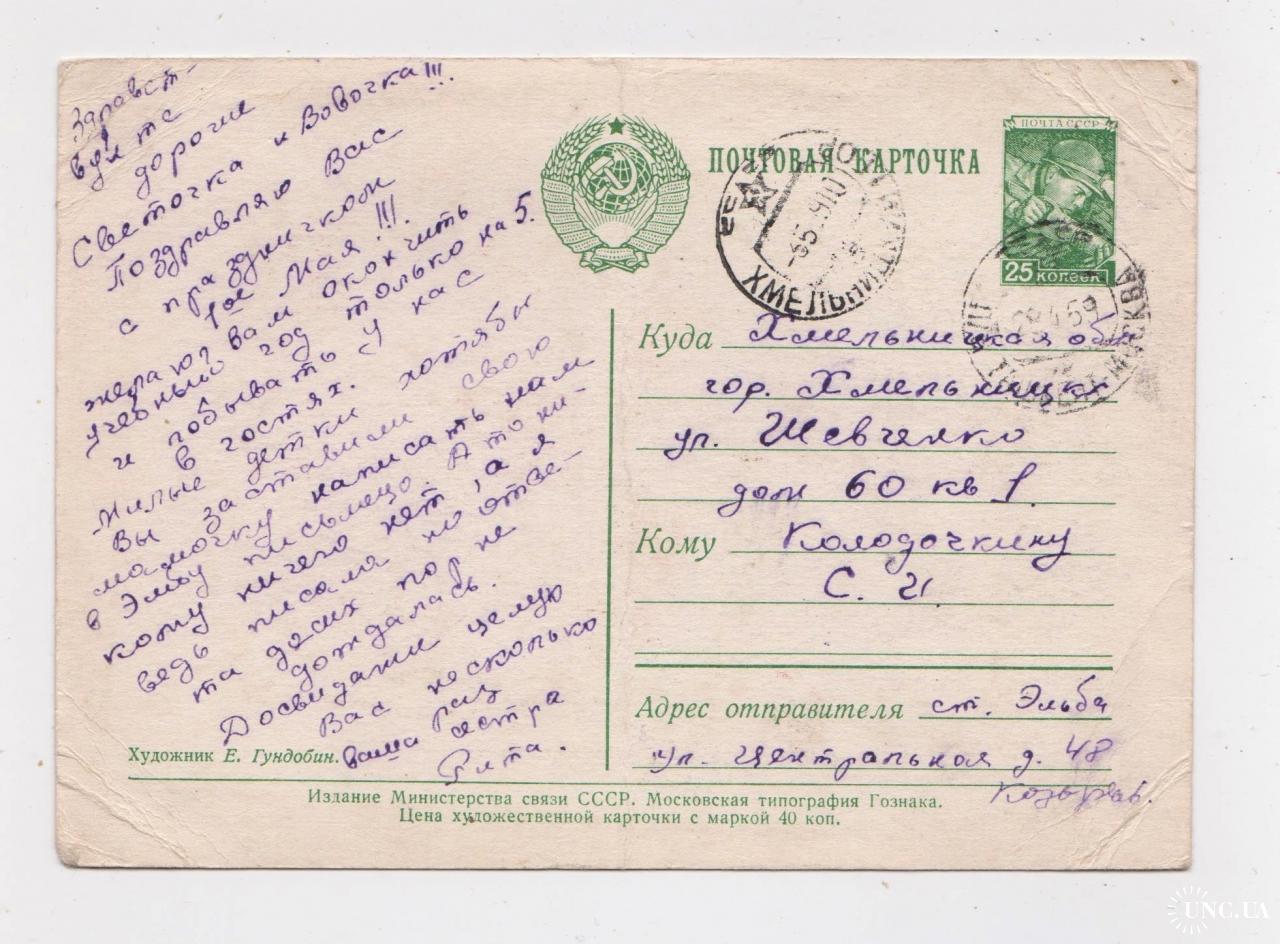 Здравст-
вуйте
дорогие
Светочка и Вовочка!!!.
Поздравляю Вас
с праздничком
1ое Мая!!!.
желаю вам окончить
учебный год только на 5.
и побывать у нас
в гостях.
Милые детки хотябы
Вы заставили свою
мамочку написать нам
в Эльбу письмецо. А то ни-
кому ничего нет, а я
ведь писала но отве-
та досих пор не
дождалась.
Досвидание целую
Вас несколько
раз
ваша сестра
Рита.
Художник Е. Гундобин.
ПОЧТОВАЯ КАРТОЧКА
ПОЧТА СССР
25 КОПЕЕК
ХМЕЛЬНИ
28 4 59
МОСКВА
Куда Хмельницкая обл
гор. Хмельницкий
ул. Шевченко
дом 60 кв 1
Кому Колодочкину
С. И.
Адрес отправителя ст. Эльба
ул. Центральная д. 48
Козырев.
Издание Министерства связи СССР. Московская типография Гознака.
Цена художественной карточки с маркой 40 коп.
UNC.UA